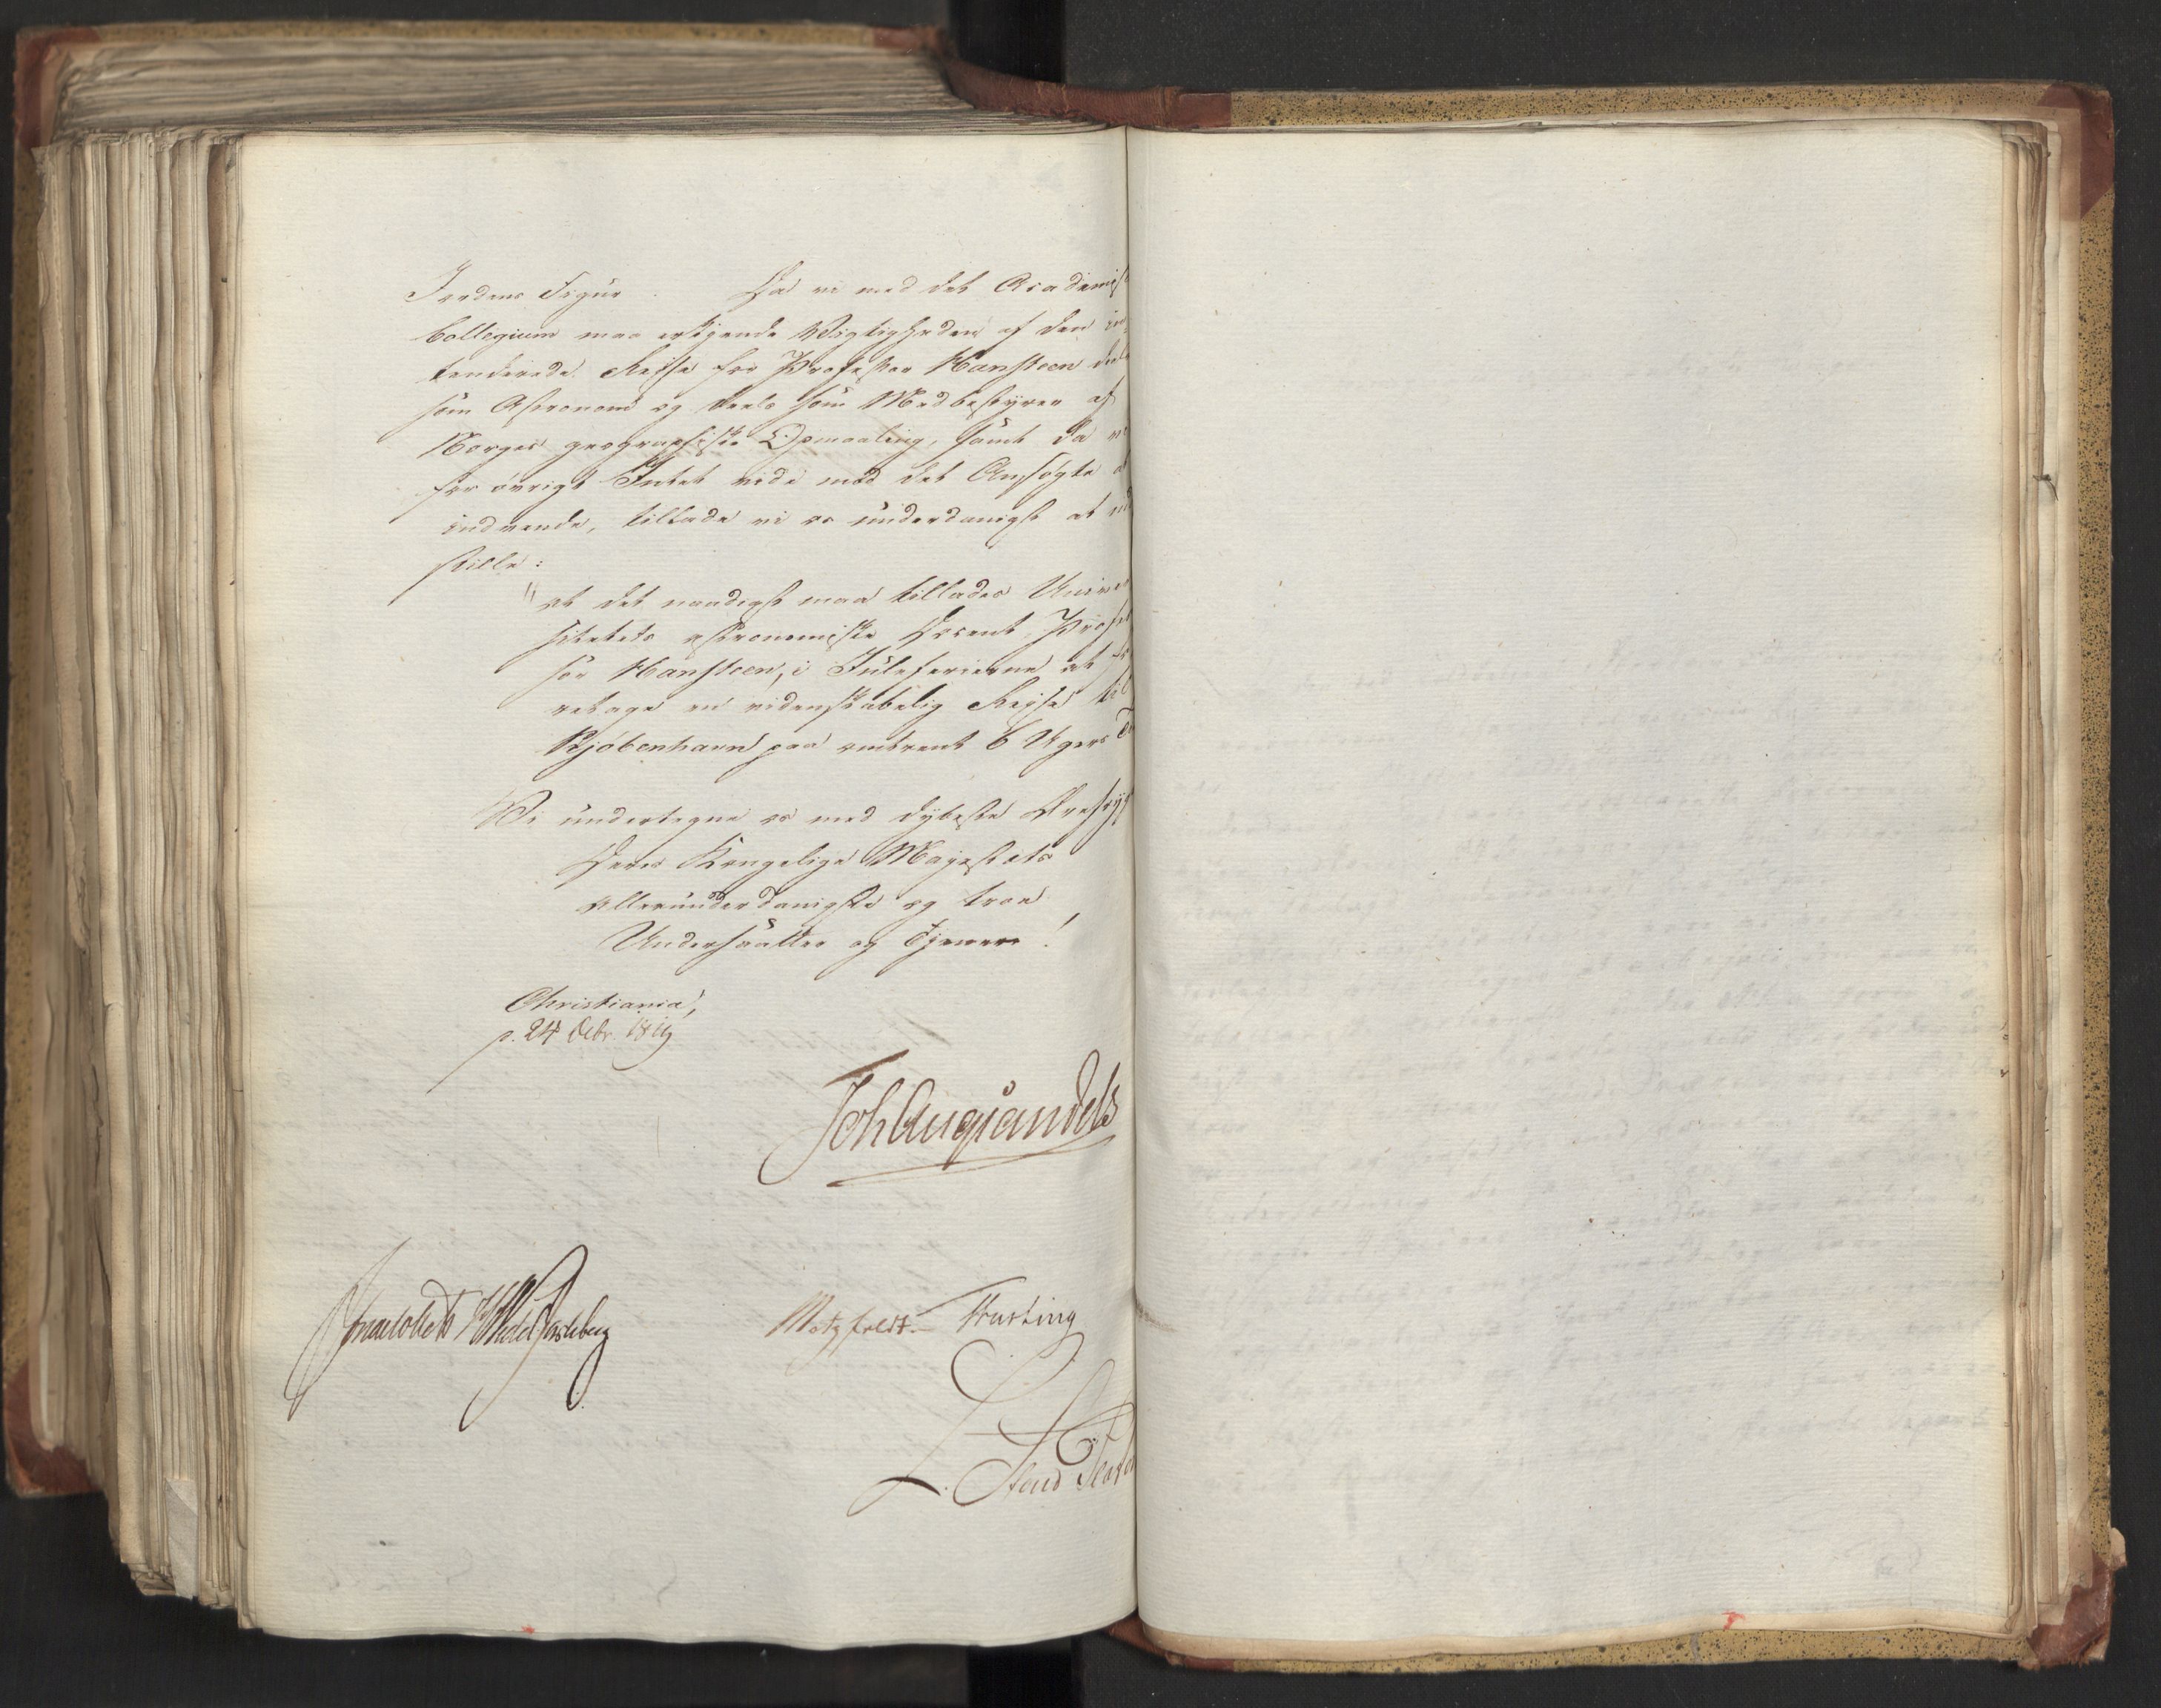 Jordens Figur. Da vi med det Academisk
Collegium maa erkjende Vigtigheden af den in-
tenderede Rejse for Professor Hansteen deels
som Astronom og deels som Medbestyrer af
Norges geographiske Opmaaling, samt da vi
for øvrigt Intet vide mod det Ansøgte at
indvende, tillade vi os underdanigst at ind
stille:
"at det naadigst maa tillades Univer
sitetets astronomiske Docent, Profes
sor Hansteen, i Juleferierne at fo
retage en videnskabelig Rejse til
Kjøbenhavn paa omtrent 6 Ugers Ti
Vi undertegne os med dybeste Ærefrygt
Deres Kongelige Majestæts
allerunderdanigste og troe
Undersaatter og Tjenere!
Christiania,
d. 24 Octbr. 1819
Joh Aug Sandels
Mariboe HWedel Jarlsberg
Motzfeldt. Krefting
L. Stoud Platou